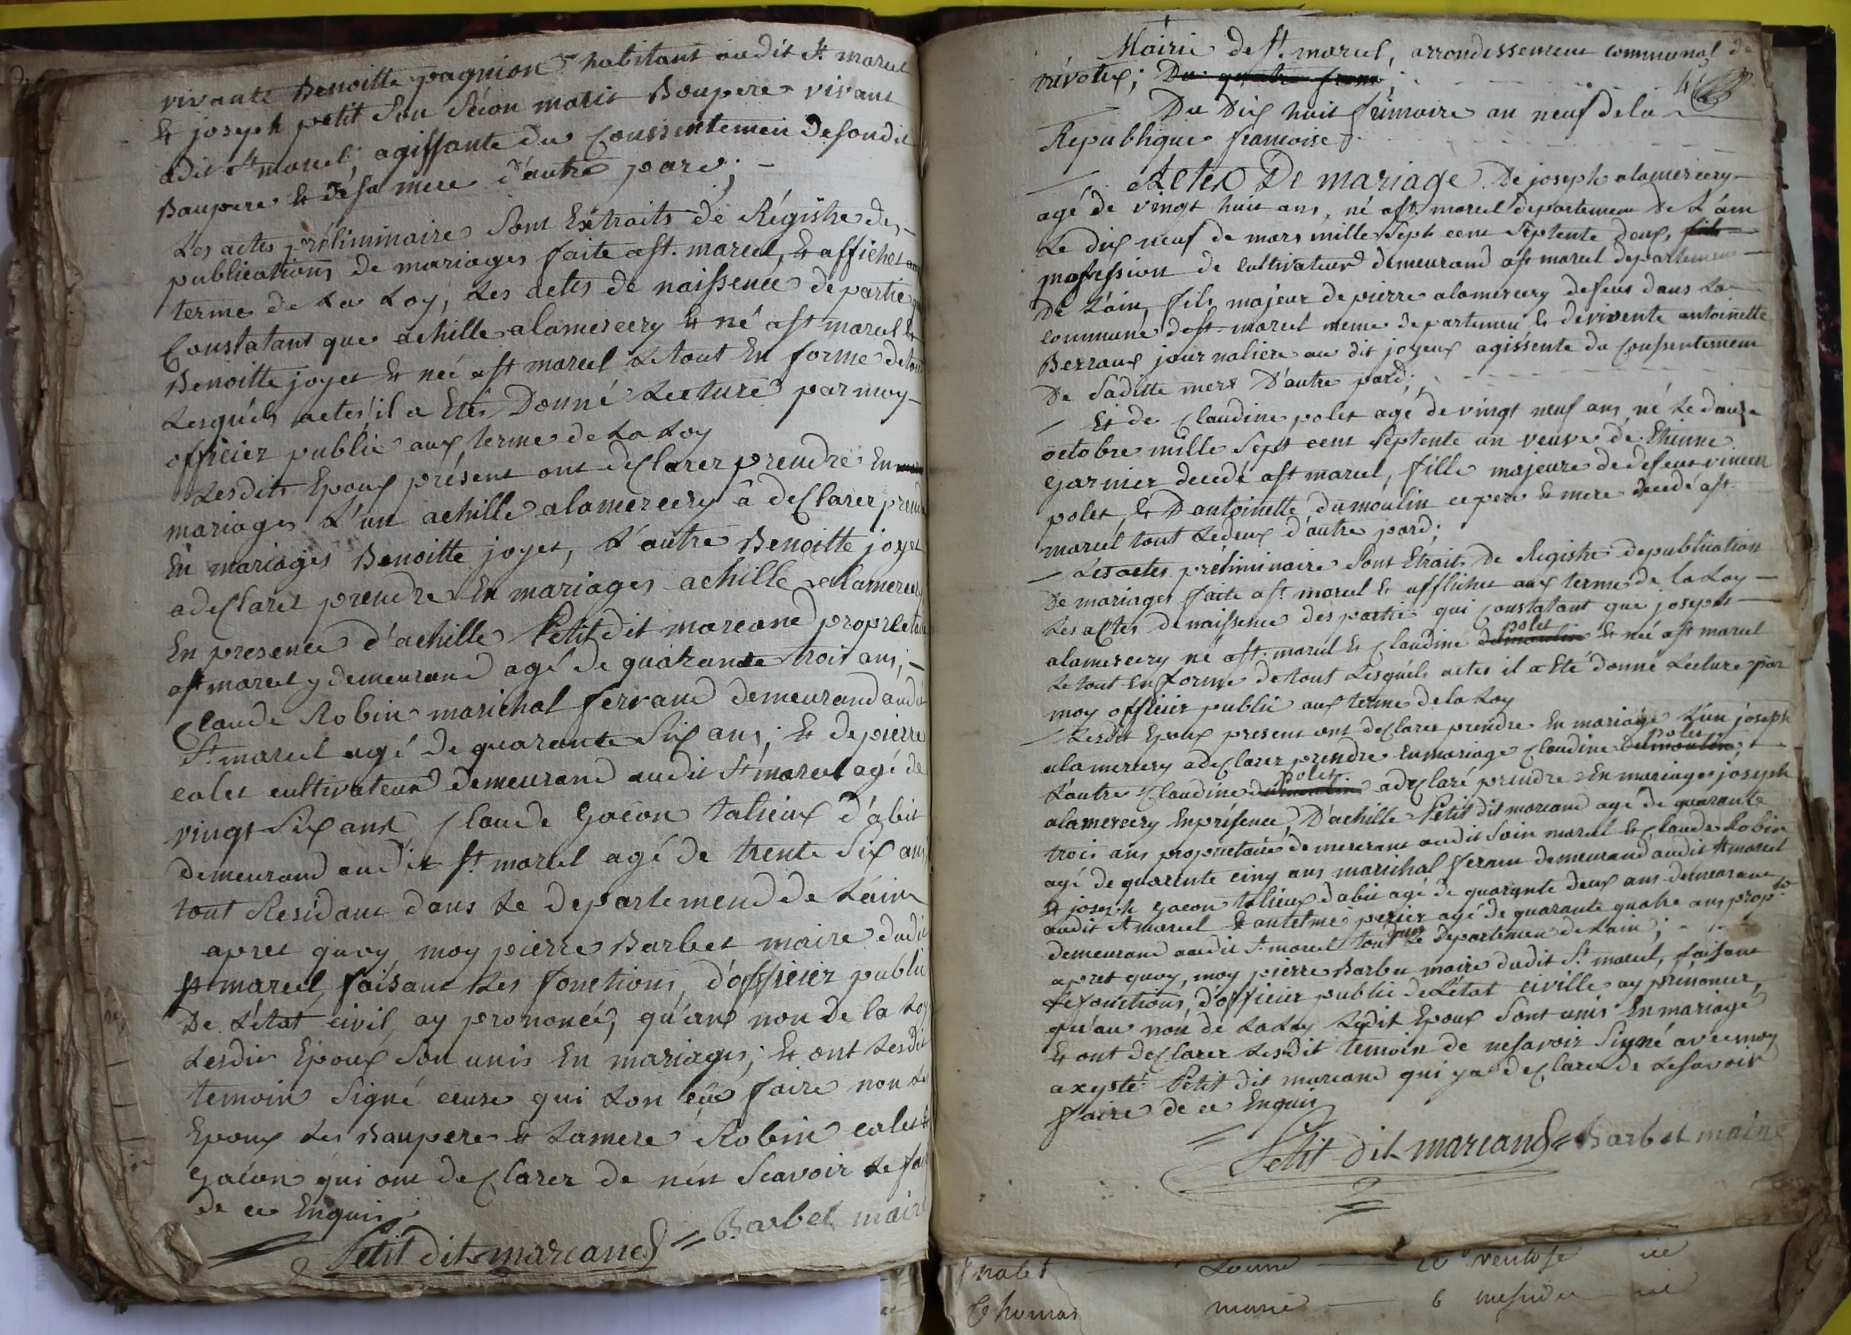 vivante Benoitte pagnion habitant audit St. marcel
Et joseph petit Son Secon marit Boupere vivant
adit St marcel; agissante du Conssentemen desondit
Baupere Et desa mere d'autre pard; -
Les actes préliminaire Sont Extraits de Régistre de
publications de mariages faite a St. marcel, Et affiches aux
terme de La Loy; Les actes de naissence de partie qui
Constatant que achille alamercery Et né a St marcel Et
Benoitte joyet Et née a St marcel Le tout En forme detout
Lesquels actes il a Etés Donné Lecture par moy
officier public aux terme de La Loy
Lesdits Epoux présent ont desclarer prendre En
mariages L'un achille alamercery â desclarer prendre
En mariages Benoitte joyet, L'autre Benoitte joyet
a desclarer prendre En mariages achille alamercery
En presence d'achille Petit dit marcand propriètaire
a St marcel y demeurand agé de quarante trois ans; -
Claude Robin marichal ferrand demeurand audit
St. marcel agé de quarante Six ans; Et de pierre
calet cultivateur demeurand audit St marcel agé de
vingt Six ans Claude Gacon talieux d'abit
demeurand audit St. marcel agé de trente Six ans
tout Residant dans Le departemend de L'ain
apret quoy, moy pierre Barbet maire dudit
St marcel faisant Les fonctions, d'officier public
De L'état civil, ay prononcé, qu'au non de la Loy
Lesdit Epoux Son unis En mariages; Et ont Lesdit
temoin Signé ceuse qui Lon eû faire non Les
Epoux Les Baupere Et Lamere Robin calet Et
Gacon qui ont desclarer de nên Scavoir Le faire
de ce Enquis;
Petit dit marcand = Barbet maire
Mairie de St. marcel, arrondissement communal de
trévotix; Du quatre frim;
Du Dix huit frimaire an neuf de la
Republique francoise
Actes De mariage De joseph alamercery
agé de vingt huit ans, né a St. marcel departement De L'ain
Le dix neuf de mars mille Sept cent Septente deux, fils
profession de cultivateur demeurand a St marcel departement
De L'ain, fils majeur de pierre alamercery defeus dans La
commune de St. marcel meme departement Et de vivente antoinette
Berraux journaliere au dit joyeux agissente du Conssentement
De Saditte mere D'autre pard;
Et de Claudine polet agé de vingt neuf ans, né Le douze
octobre mille Sept cent Septente un veuve de Etienne
Garnier decedé a St marcel, fille majeure de defeus vincent
polet, Et D'antoinette dumoulin ce pere Et mere decedé a St.
marcel tout Ledeux d'autre pard;
Les actes préliminaire Sont Etraits De Registre depublication
De mariages faite a St marcel Et affichet aux terme de la Loy
Les actes de naissence des partie qui Constatant que joseph
alamercery né a St. marcel Et Claudine dumoulin polet Et née a St marcel
Le tout En forme de tout Lesquels actes il a Eté donné Lecture par
moy officier public aux terme de la Loy
Lesdit Epoux present ont desclarer prendre En mariage L'un joseph
alamercery a desclarer prendre En mariage Claudine dumoulin polet; Et
L'autre Claudine dumoulin polet a desclaré prendre En mariages joseph
alamercery En présence, D'achille Petit dit marcand agé de quarante
trois ans proprietaire demeurant audit Sain marcel Et Claude Robin
agé de quarente cinq ans marichal ferant demeurand audit St marcel
Et joseph gacon talieux dabit agé de quarante deux ans demeurant
audit St marcel Et antelme perier agé de quarante quatre ans prop.re
demeurand audit St. marcel tout dans Le departement de L'ain;
apret quoy, moy pierre Barbet maire dudit St. marcel, faisant
Lefonctions, d'officier public de L'état civille ay prénoncer,
qu'au non de La Loy Ledit Epoux Sont unis En mariage
Et ont desclarer Lesdit temoin de nesavoir Signé avec moy
axepté Petit dit marcand qui y a desclarer de Lesavoir
faire de ce Enquis
Petit dit marcand = Barbet maire
Louise 20 ventose
Thomas marie 6 messidor